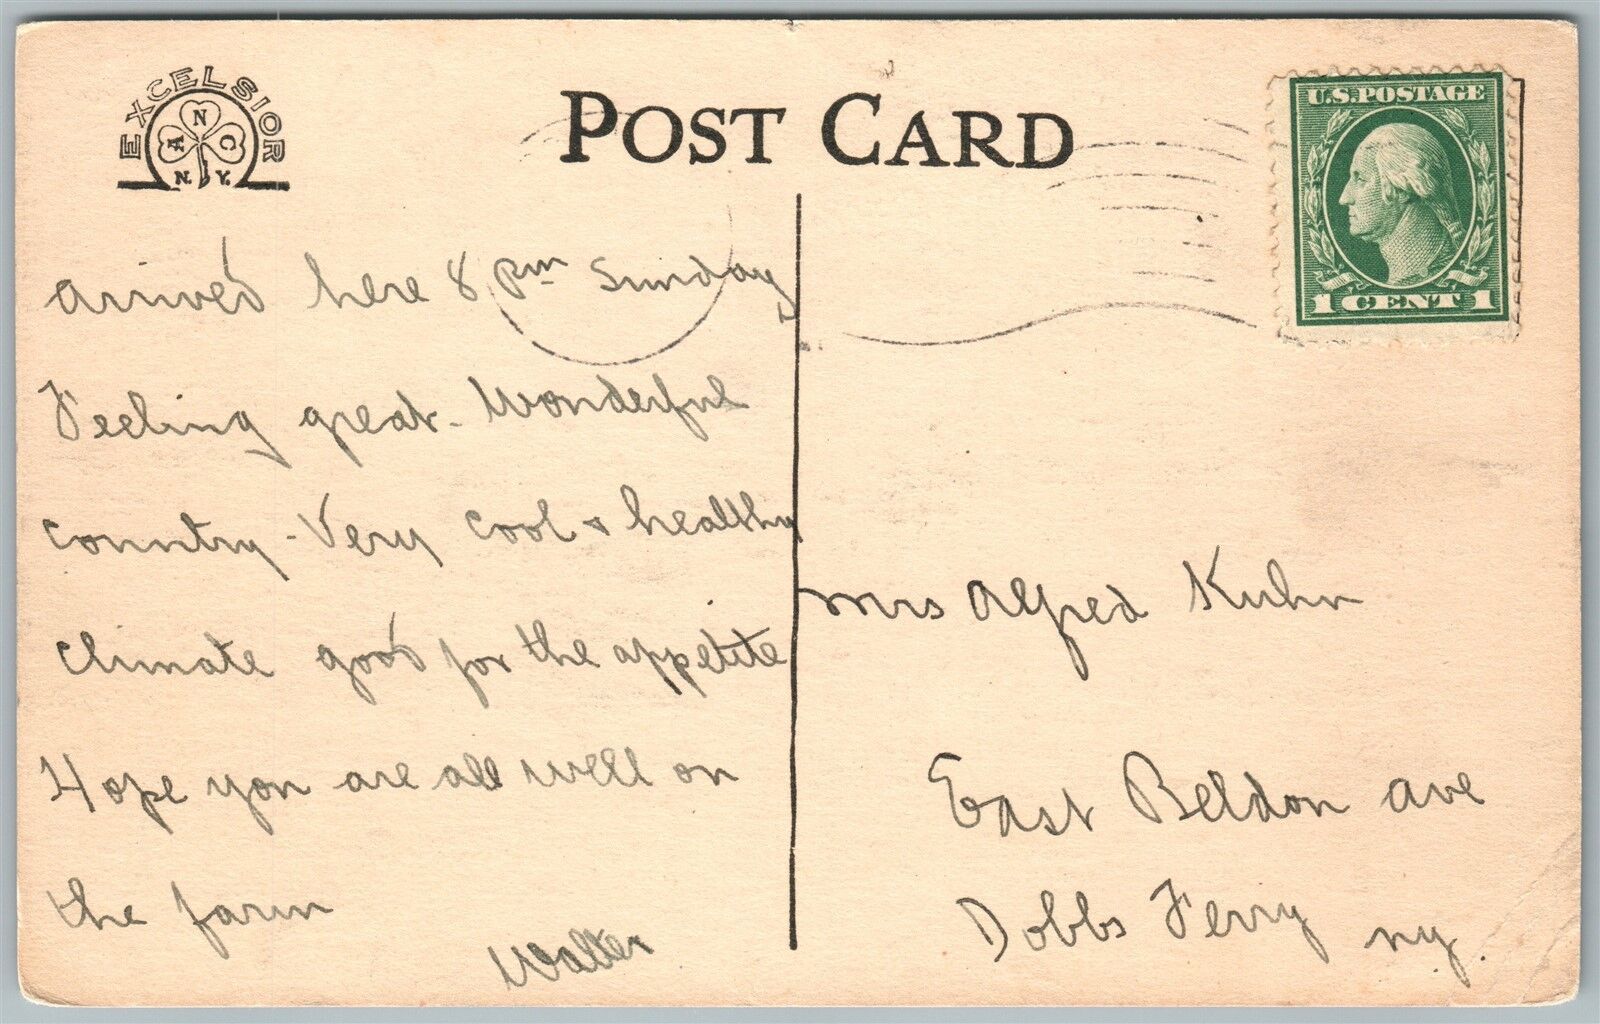 EXCELSIOR
A N C
N. Y.
POST CARD
U.S. POSTAGE
1 CENT 1
arrived here 8 pm Sunday
Feeling great - Wonderful
country - Very cool + healthy
climate good for the appetite
Hope you are all well on
the farm
Walter
Mrs Alfred Kuhn
East Beldon ave
Dobbs Ferry ny.